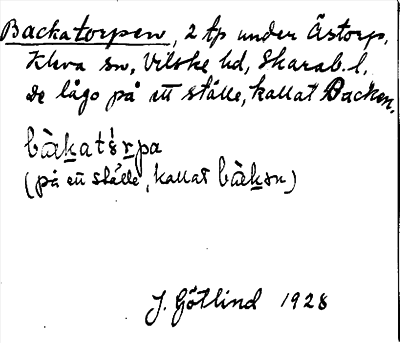 Backatorpen, 2 tp under Åstorp,
Kleva sn, Vilske hd, Skarab. l.
De lågo på ett ställe, kallat Backen.
bàkatśrpa
(på ett ställe, kallat bàksn)
J. Götlind 1928